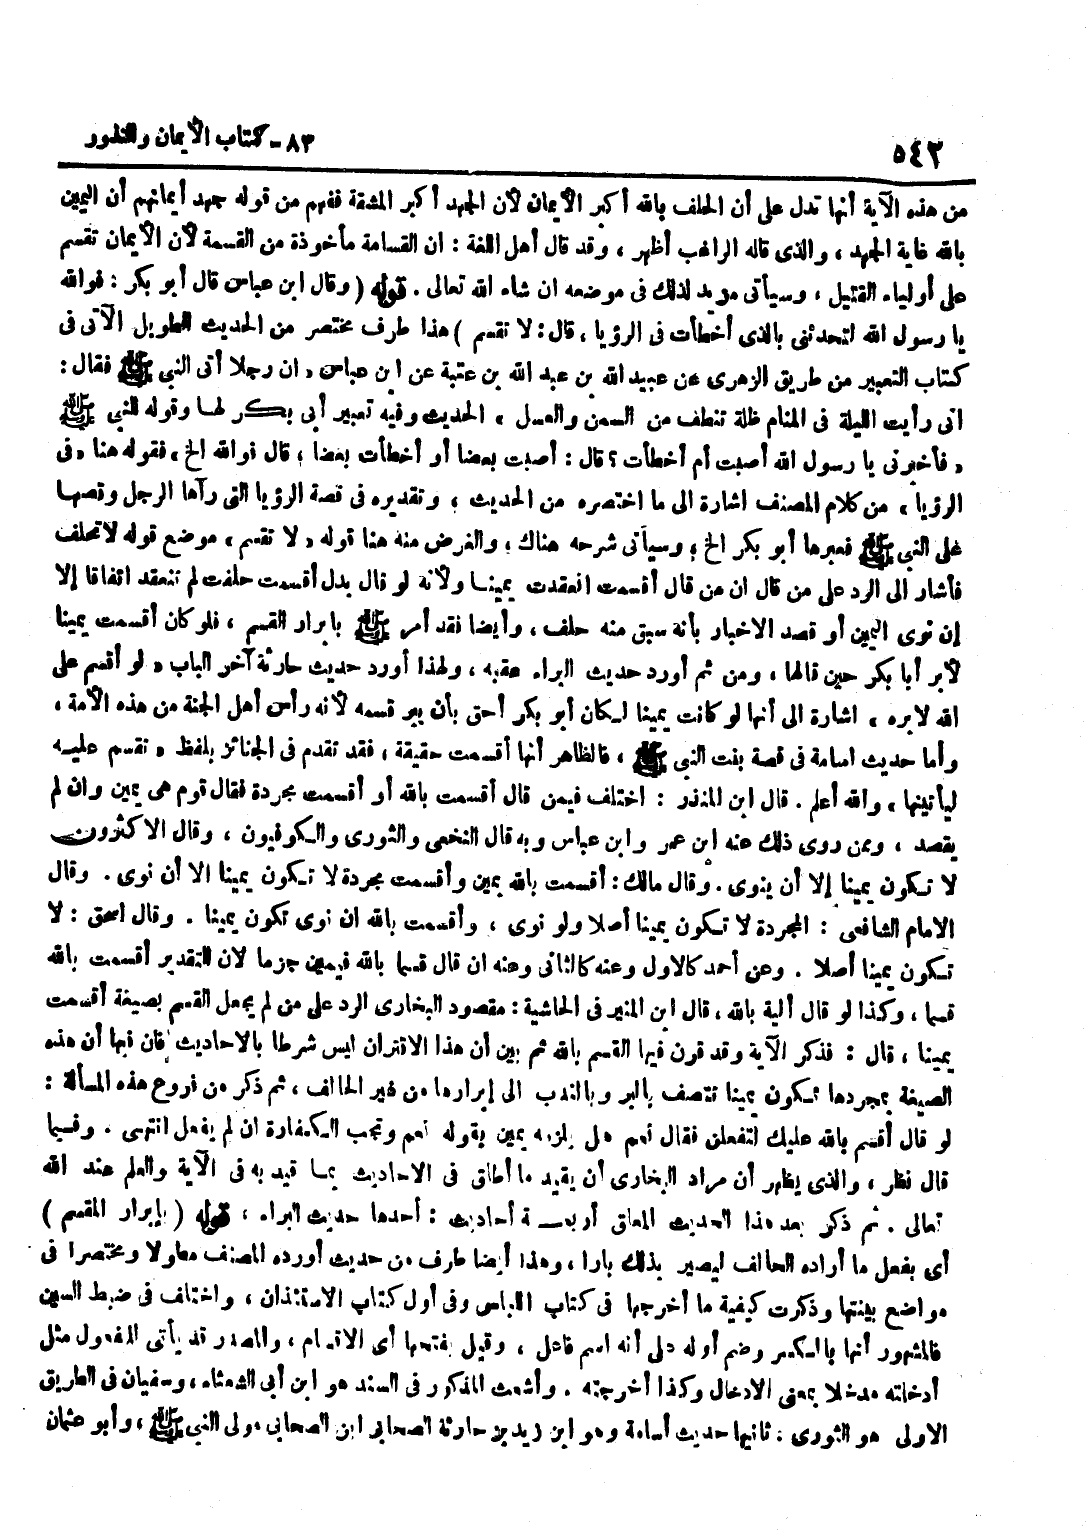 ٥٤٣
٨٣ - كتاب الأيمان والنذور
من هذه الآية أنها تدل على أن الحلف بالله أكبر الأيمان لأن الجهد أكبر المشقة ففهم من قوله جهد أيمانهم أن اليمين
بالله غاية الجهد ، والذى قاله الراغب أظهر ، وقد قال أهل اللغة : ان القسامة مأخوذة من القسمة لأن الأيمان تقسم
على أولياء القتيل ، وسيأتى مزيد لذلك فى موضعه ان شاء الله تعالى . قوله ( وقال ابن عباس قال أبو بكر : فوالله
يا رسول الله لتحدثنى بالذى أخطأت فى الرؤيا ، قال : لا تقسم ) هذا طرف مختصر من الحديث الطويل الآتى فى
كتاب التعبير من طريق الزهرى عن عبيد الله بن عبد الله بن عتبة عن ابن عباس « ان رجلا أتى النبي ﷺ فقال :
انى رأيت الليلة فى المنام ظلة تنطف من السمن والعسل » الحديث وفيه تعبير أبى بكر لها وقوله للنبي ﷺ
« فأخبرنى يا رسول الله أصبت أم أخطأت ؟ قال : أصبت بعضا أو أخطأت بعضا ؛ قال فوالله الخ » فقوله هنا « فى
الرؤيا » من كلام المصنف اشارة الى ما اختصره من الحديث ، وتقديره فى قصة الرؤيا التى رآها الرجل وقصها
على النبي ﷺ فعبرها أبو بكر الخ ، وسيأتى شرحه هناك ، والغرض منه هنا قوله « لا تقسم » موضع قوله لا تحلف
فأشار الى الرد على من قال ان من قال أقسمت انعقدت يمينا ولأنه لو قال بدل أقسمت حلفت لم تنعقد اتفاقا إلا
إن نوى اليمين أو قصد الاخبار بأنه سبق منه حلف ، وأيضا فقد أمر ﷺ بابرار القسم ، فلو كان أقسمت يمينا
لأبر أبا بكر حين قالها ، ومن ثم أورد حديث البراء عقبه ، ولهذا أورد حديث حارثة آخر الباب « لو أقسم على
الله لابره » اشارة الى أنها لو كانت يمينا لكان أبو بكر أحق بأن يبر قسمه لأنه رأس أهل الجنة من هذه الأمة ،
وأما حديث اسامة فى قصة بنت النبي ﷺ ، فالظاهر أنها أقسمت حقيقة ، فقد تقدم فى الجنائز بلفظ « تقسم عليه
ليأتينها » والله أعلم . قال ابن المنذر : اختلف فيمن قال أقسمت بالله أو أقسمت مجردة فقال قوم هى يمين وان لم
يقصد ، وممن روى ذلك عنه ابن عمر وابن عباس وبه قال النخعى والثورى والكوفيون ، وقال الاكثرون
لا تكون يمينا إلا أن ينوى . وقال مالك : أقسمت بالله يمين وأقسمت مجردة لا تكون يمينا الا أن نوى . وقال
الامام الشافعى : المجردة لا تكون يمينا أصلا ولو نوى ، وأقسمت بالله ان نوى تكون يمينا . وقال اسحق : لا
تكون يمينا أصلا . وعن أحمد كالاول وعنه كالثانى وعنه ان قال قسما بالله فيمين جزما لان التقدير أقسمت بالله
قسما ، وكذا لو قال ألية بالله ، قال ابن المنير فى الحاشية : مقصود البخارى الرد على من لم يجعل القسم بصيغة أقسمت
يمينا ، قال : فذكر الآية وقد قرن فيها القسم بالله ثم بين أن هذا الاقتران ليس شرطا بالاحاديث فان فيها أن هذه
الصيغة بمجردها تكون يمينا تتصف بالبر وبالندب الى إبرارها من غير الحالف ، ثم ذكر من فروع هذه المسألة :
لو قال أقسم بالله عليك لتفعلن فقال نعم هل يلزمه يمين بقوله نعم وتجب الكفارة ان لم يفعل انتهى . وفيما
قال نظر ، والذى يظهر أن مراد البخارى أن يقيد ما أطلق فى الاحاديث بما قيد به فى الآية والعلم عند الله
تعالى . ثم ذكر بعد هذا الحديث المعلق أربعة أحاديث : أحدها حديث البراء ، قوله ( بابرار المقسم )
أى بفعل ما أراده الحالف ليصير بذلك بارا ، وهذا أيضا طرف من حديث أورده المصنف مطولا ومختصرا فى
مواضع بينتها وذكرت كيفية ما أخرجها فى كتاب اللباس وفى أول كتاب الاستئذان ، واختلف فى ضبط السين
فالمشهور أنها بالكسر وضم أوله على أنه اسم فاعل ، وقيل بفتحها أى الاقسام ، والمصدر قد يأتى للمفعول مثل
أدخلته مدخلا بمعنى الادخال وكذا أخرجته . وأشعث المذكور فى السند هو ابن أبى الشعثاء ، وسفيان فى الطريق
الاولى هو الثورى . ثانيها حديث أسامة وهو ابن زيد بن حارثة الصحابى ابن الصحابى مولى النبي ﷺ ، وأبو عثمان